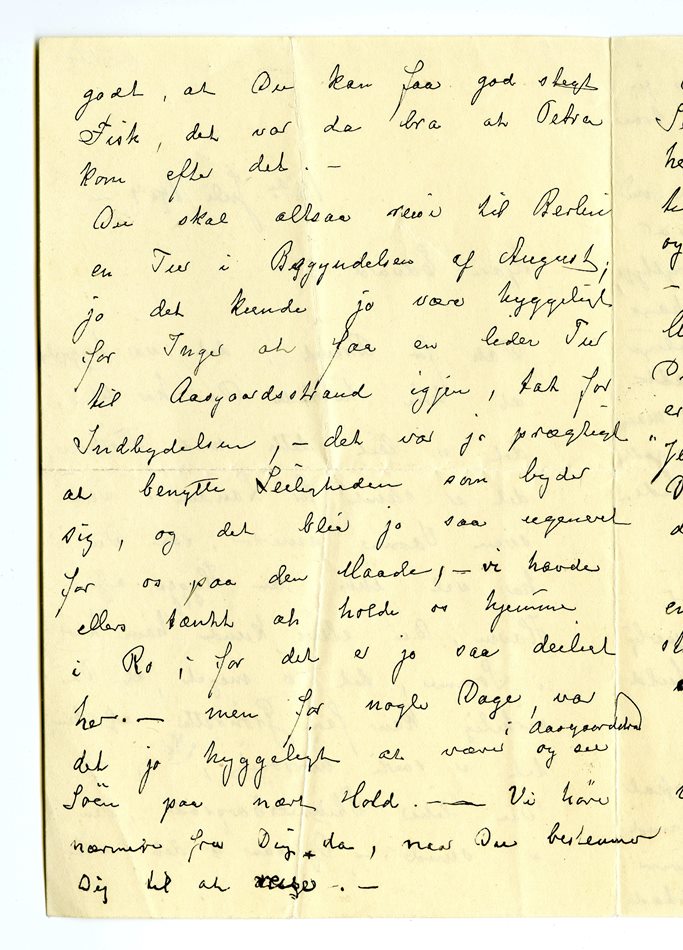 godt, at Du kan faa god stegt
Fisk, det var da bra at Petra
kom efter det. —
Du skal altsaa reise til Berlin
en Tur i Begyndelsen af August;
jo det kunde jo være hyggeligt
for Inger at faa en liden Tur
til Aasgaardsstrand igjen, tak for
Indbydelsen, — det var jo prægtigt
at benytte Leiligheden som byder
sig, og det blir jo saa ugenert
for os paa den Maade, — vi havde
ellers tænkt at holde os hjemme
i Ro, for det er jo saa deiligt
her. — men for nogle Dage, var
i Aasgaardstrand
det jo hyggeligt at være og se
Søen paa nært Hold. — Vi hører
nærmere fra Dig da, naar Du bestemmer
Dig til at reise. —